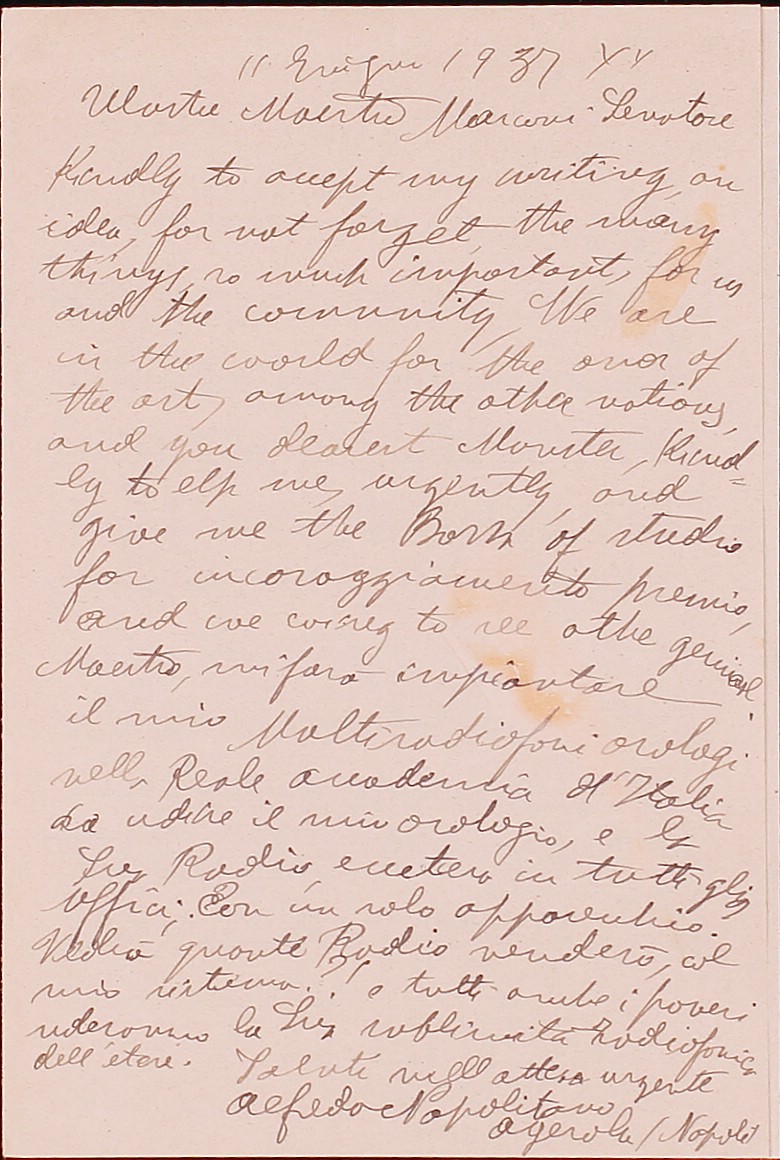 11 Giugno 1937 XV
Illustre Maestro Marconi Senatore
Kindly to accept my writing, an
idea, for not forget the many
things, so much important, for us
and the community, We are
in the world for the onor of
the art, among the other nations,
and you dearest Monster, Kind=
ly to elp me, urgently, and
give me the Borsa of studio
for incoraggiamento premio,
and we to see othe
Maestro, mi farà impiantare
il mio Multiradiofoni orologi
nella Reale accademia d'Italia
da udire il mio orologio, e la
Sua Radio eccetera in tutti gli
Uffici; Con un solo apparecchio.
Vedrà quante Radio venderà, col
mio sistema. e tutti anche i poveri
uderanno la Sua sublimità radiofonica
dell'etere.
Saluti nell'attesa urgente
Alfredo Napolitano
Agerola (Napoli